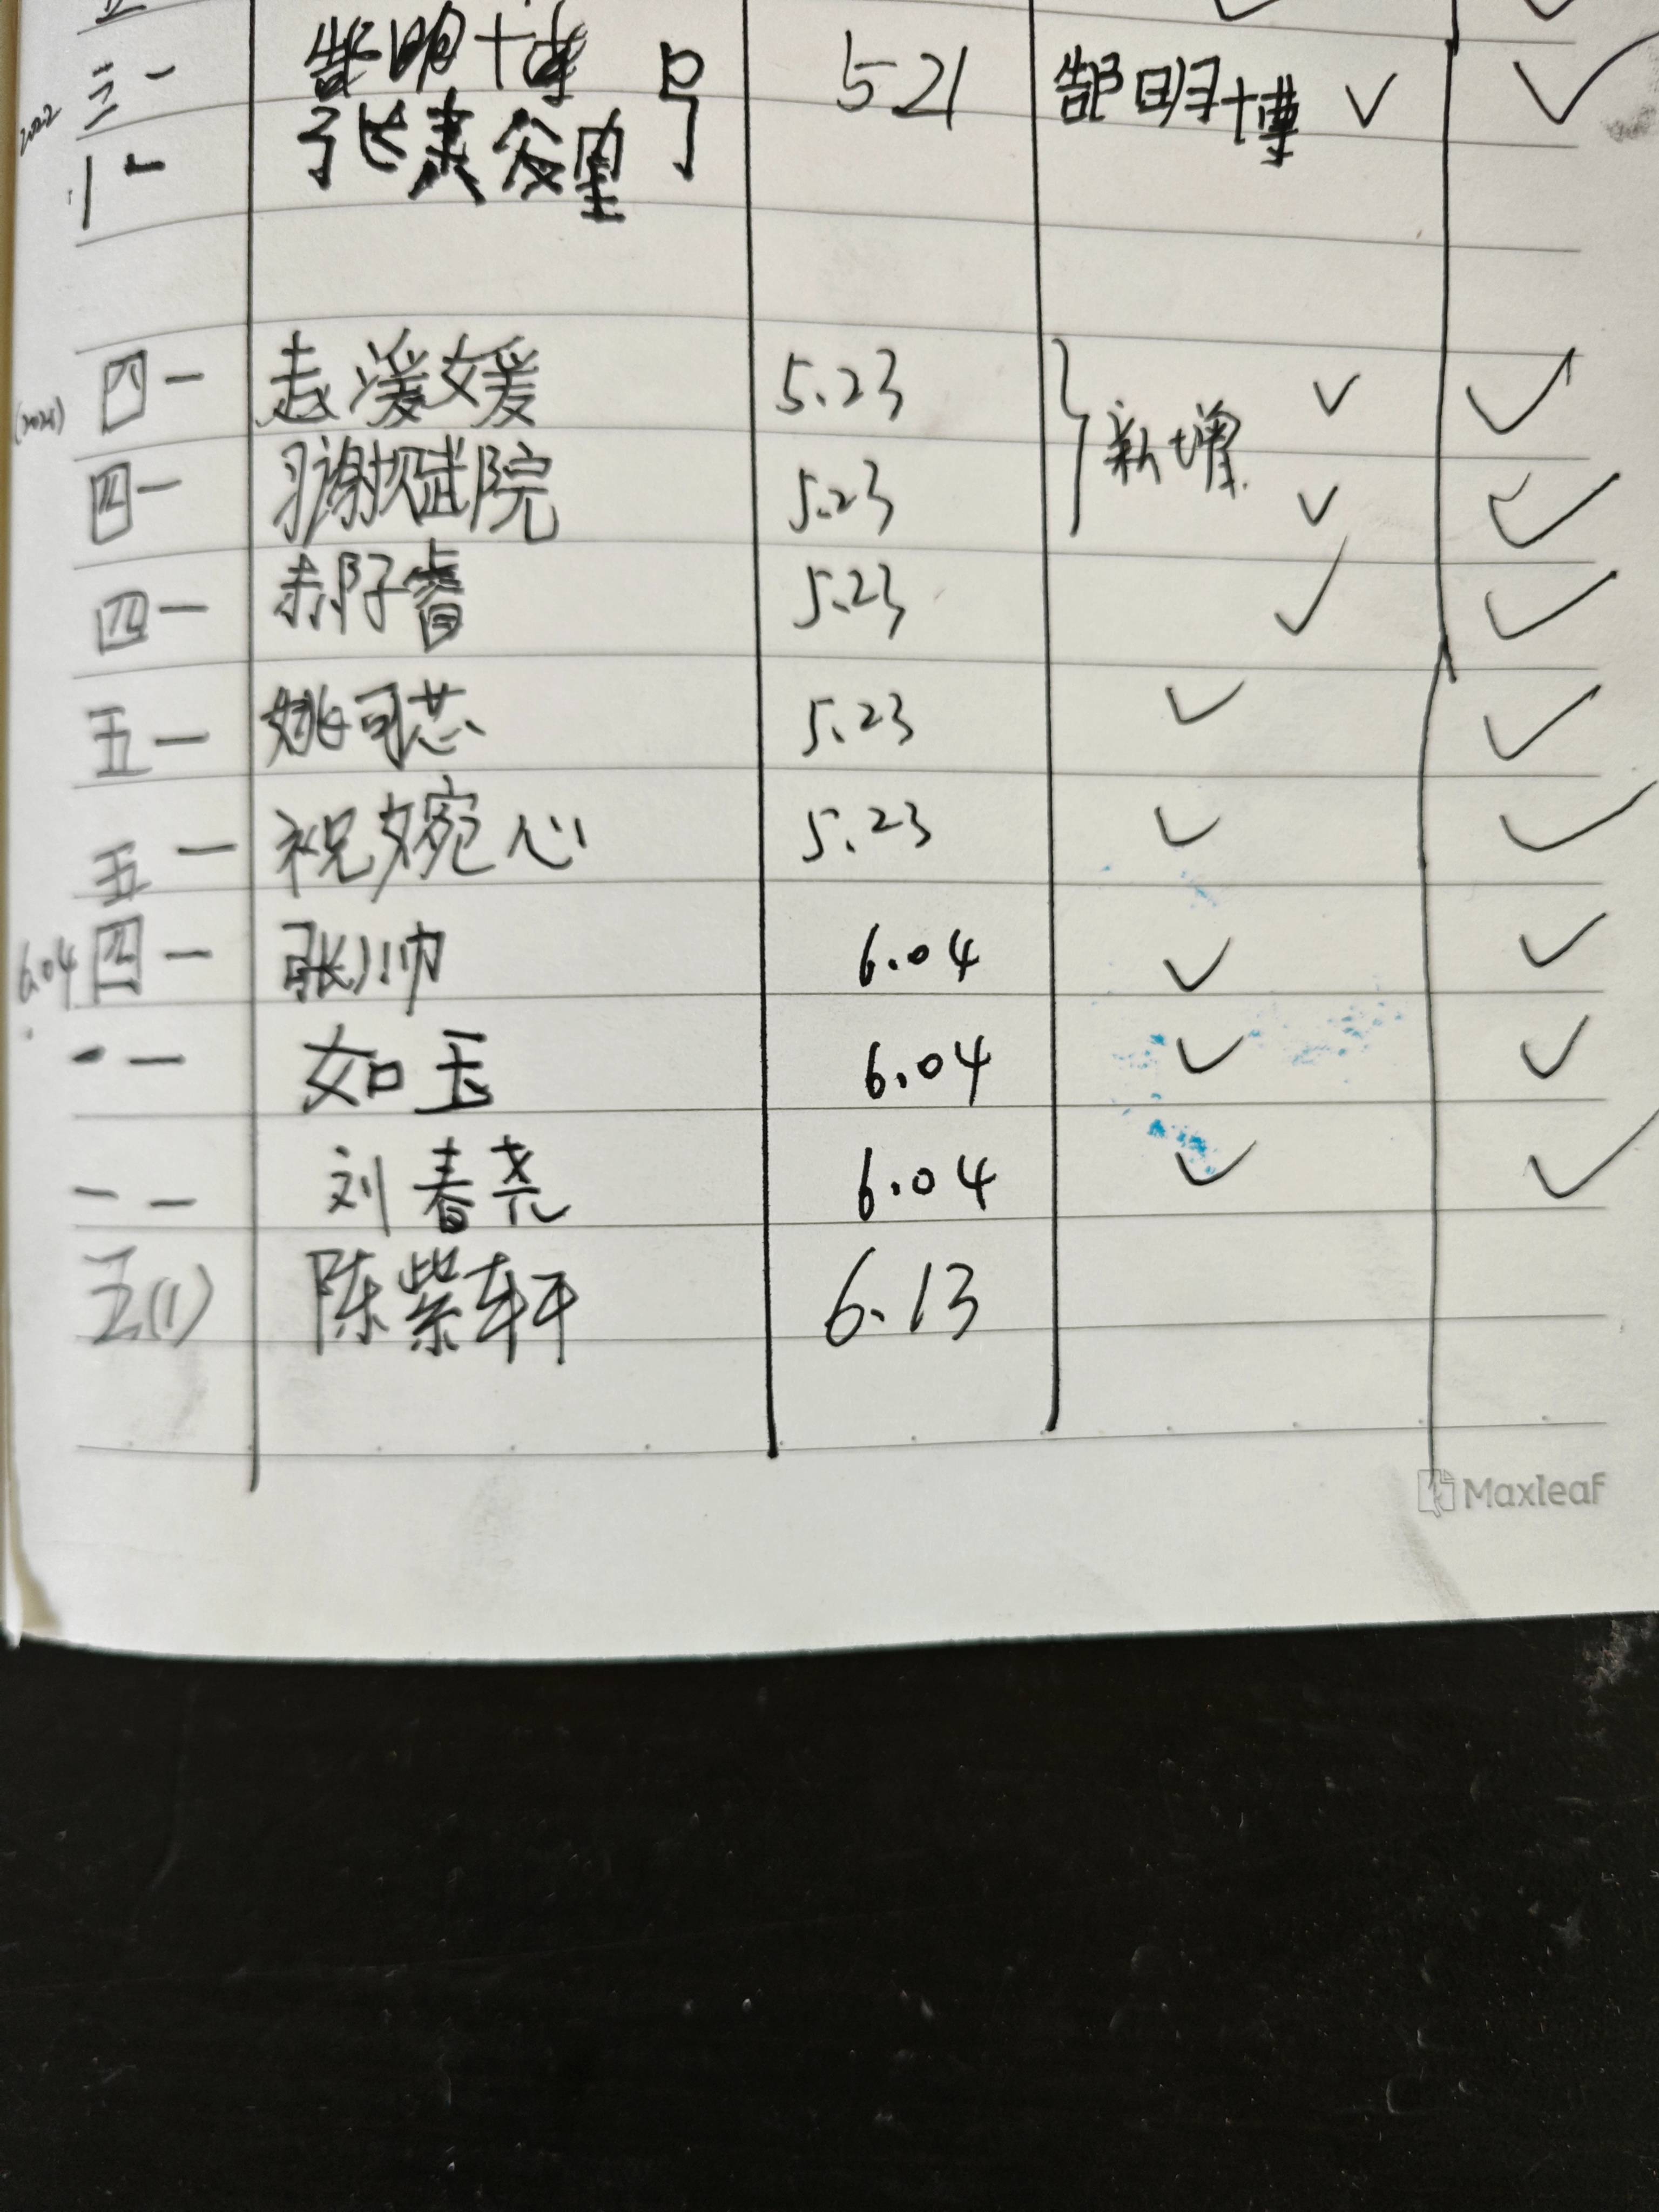 三一 郜明博 号 5.21 郜明博 ✓ ✓
2022
一一 张
四一 赵湲媛 5.23 新增 ✓ ✓
四一 谢斌院 5.23 ✓ ✓
四一 郝子睿 5.23 ✓ ✓
五一 姚可芯 5.23 ✓ ✓
五一 祝婉心 5.23 ✓ ✓
6.04 四一 张帅 6.04 ✓ ✓
一一 如玉 6.04 ✓ ✓
一一 刘春尧 6.04 ✓ ✓
五(1) 陈紫轩 6.13
Maxleaf